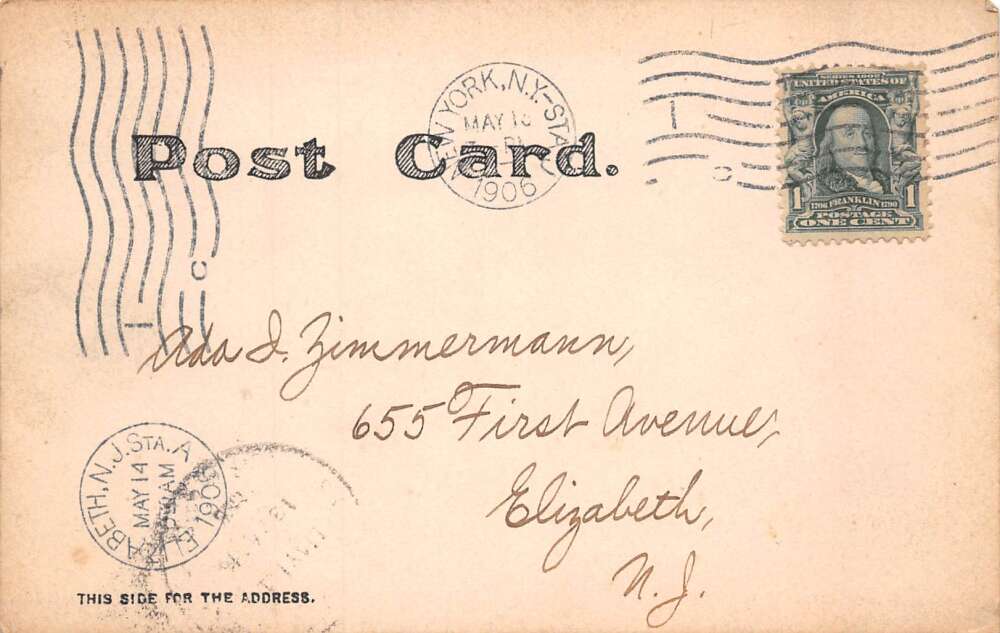 Post Card.
NEW YORK, N.Y.-STA.
MAY 13
1906
SERIES 1902
UNITED STATES OF
AMERICA
1706 FRANKLIN 1790
POSTAGE
1 1
ONE CENT
Ada I. Zimmermann,
655 First Avenue,
Elizabeth,
N.J.
ELIZABETH, N.J. STA. A
MAY 14
AM
1906
THIS SIDE FOR THE ADDRESS.